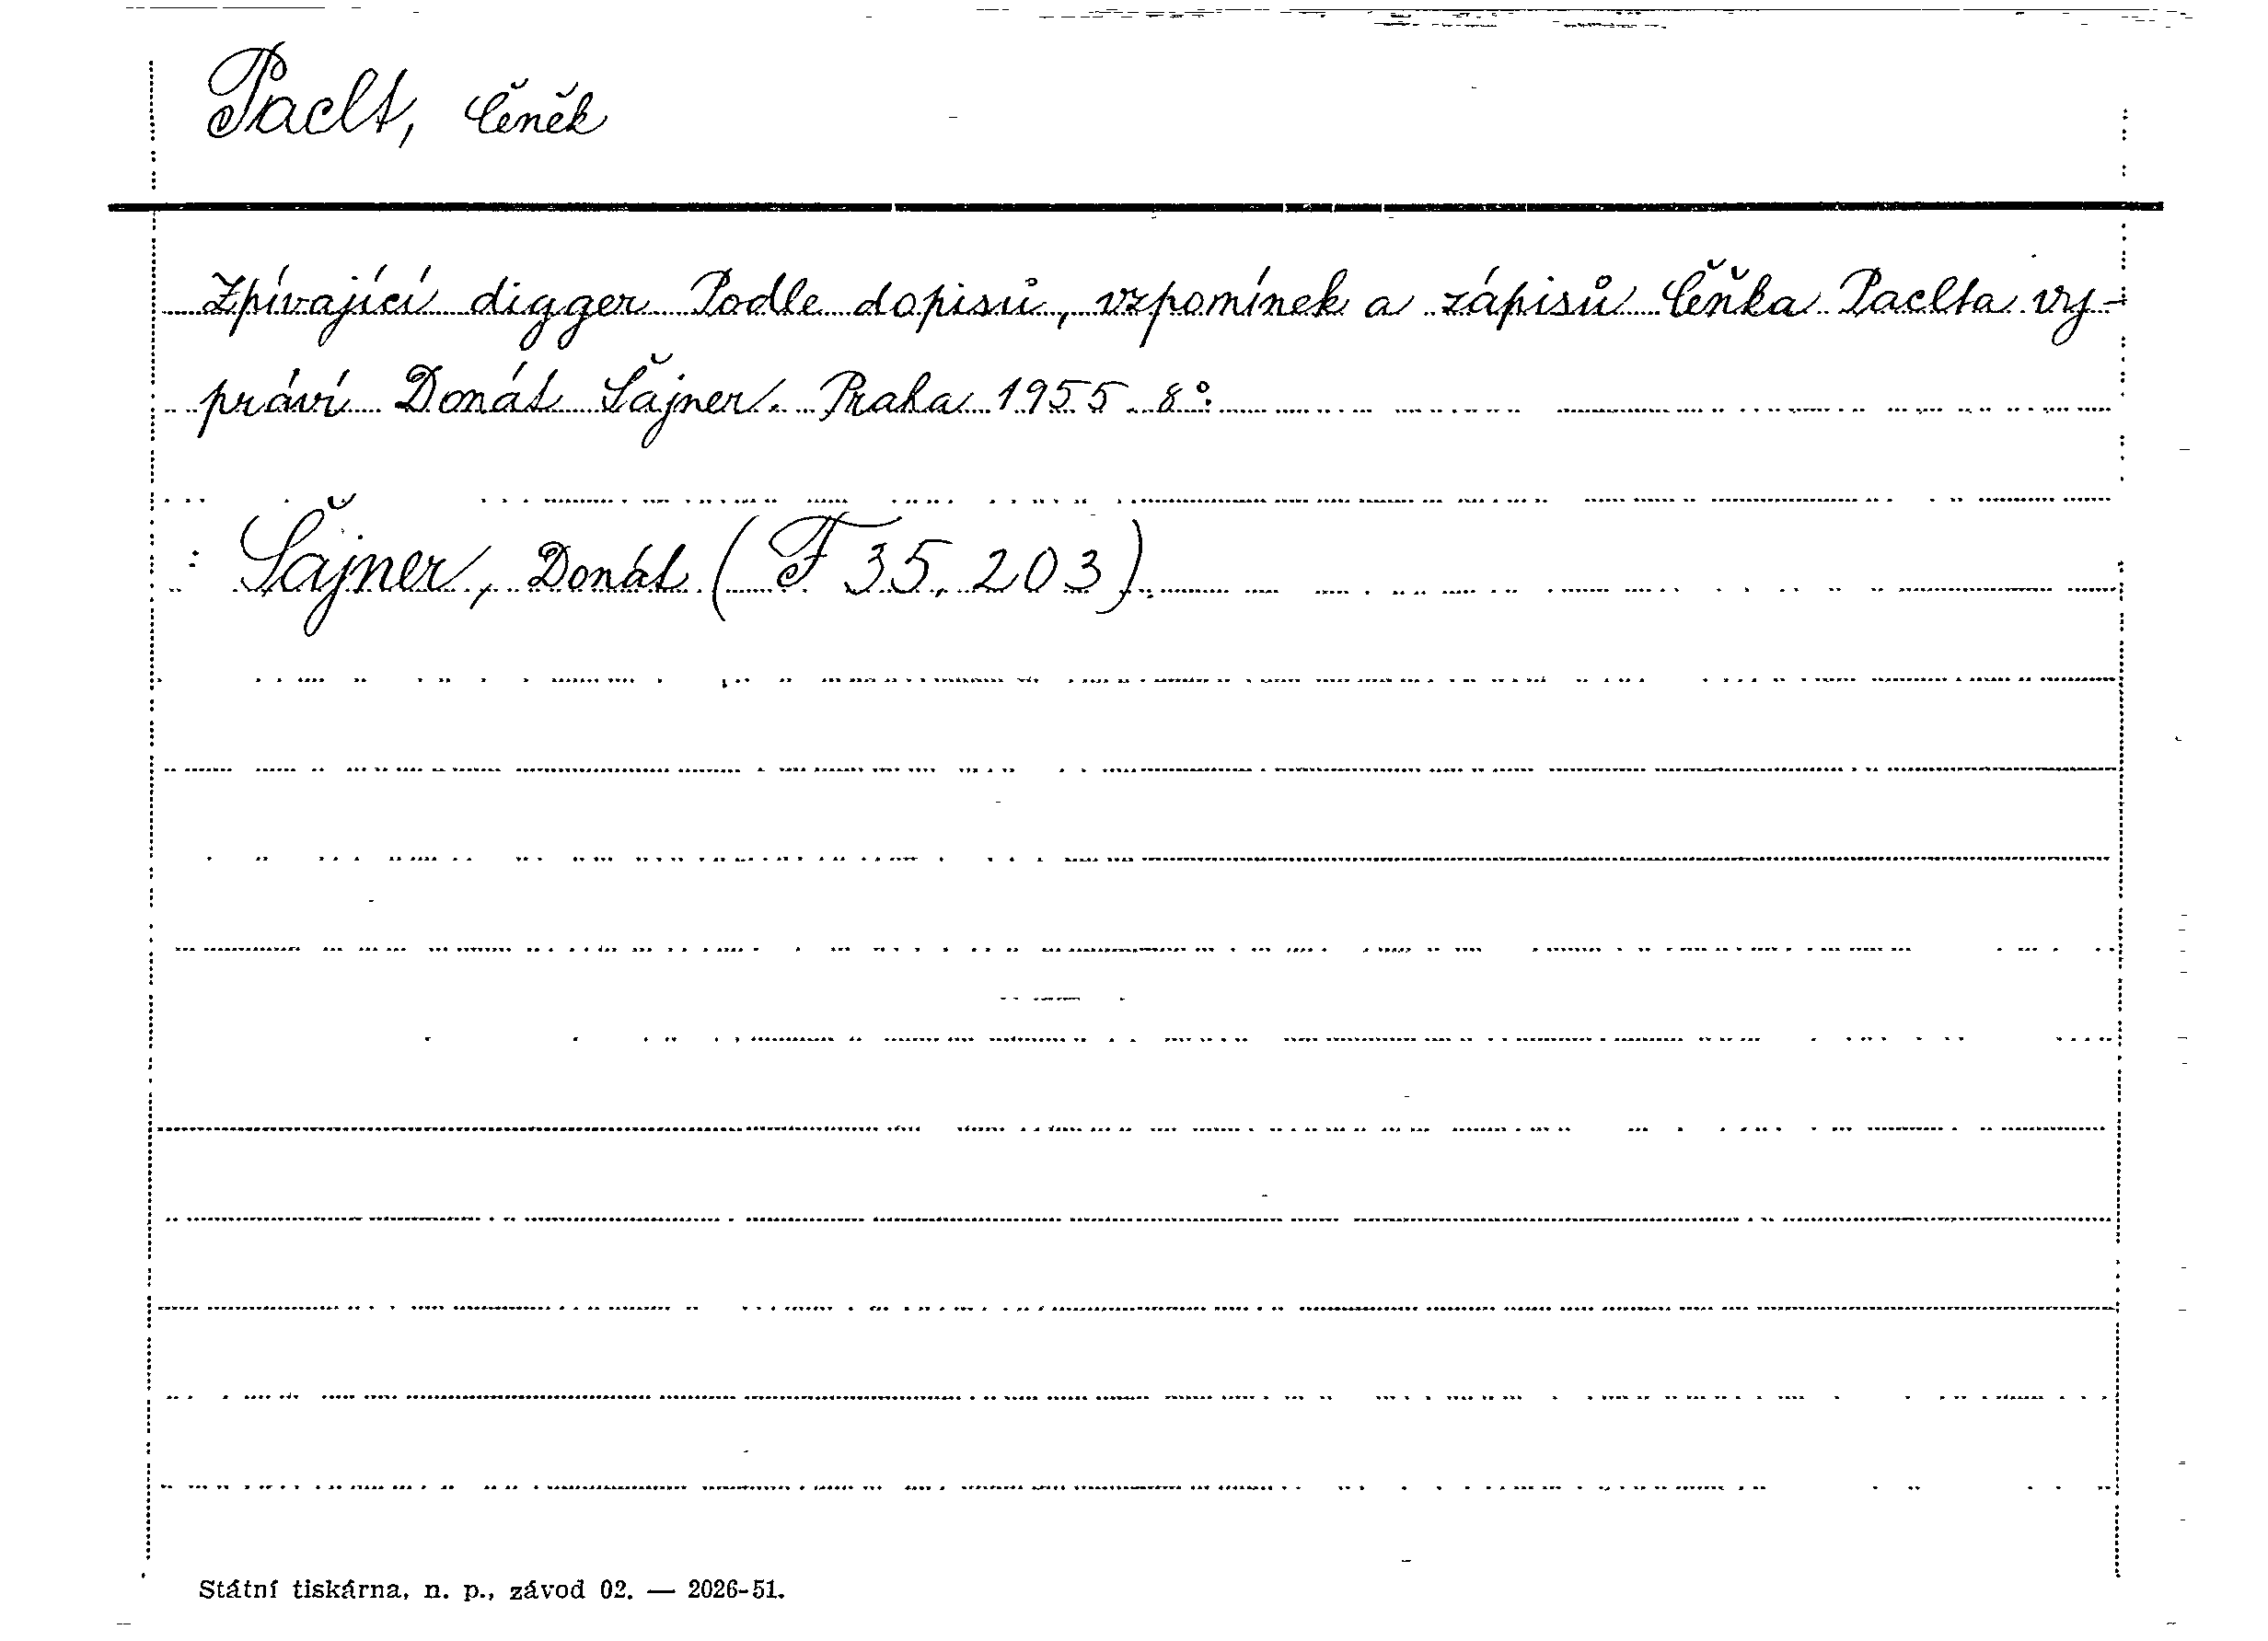 Paclt, Čeněk
Zpívající digger. Podle dopisů, vzpomínek a zápisů Čeňka Paclta vy-
práví Donát Šajner. Praha 1955. 8°.
: Šajner, Donát (F 35.203).
Státní tiskárna, n. p., závod 02. — 2026-51.